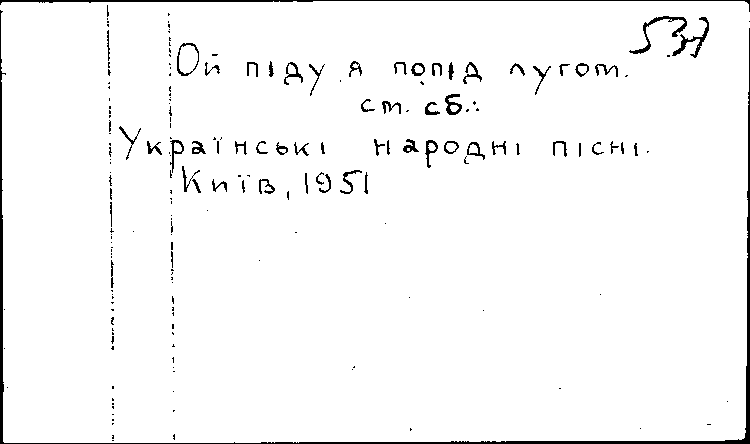 537
Ой піду я попід лугом.
см. сб.:
Українські народні пісні.
Київ, 1951